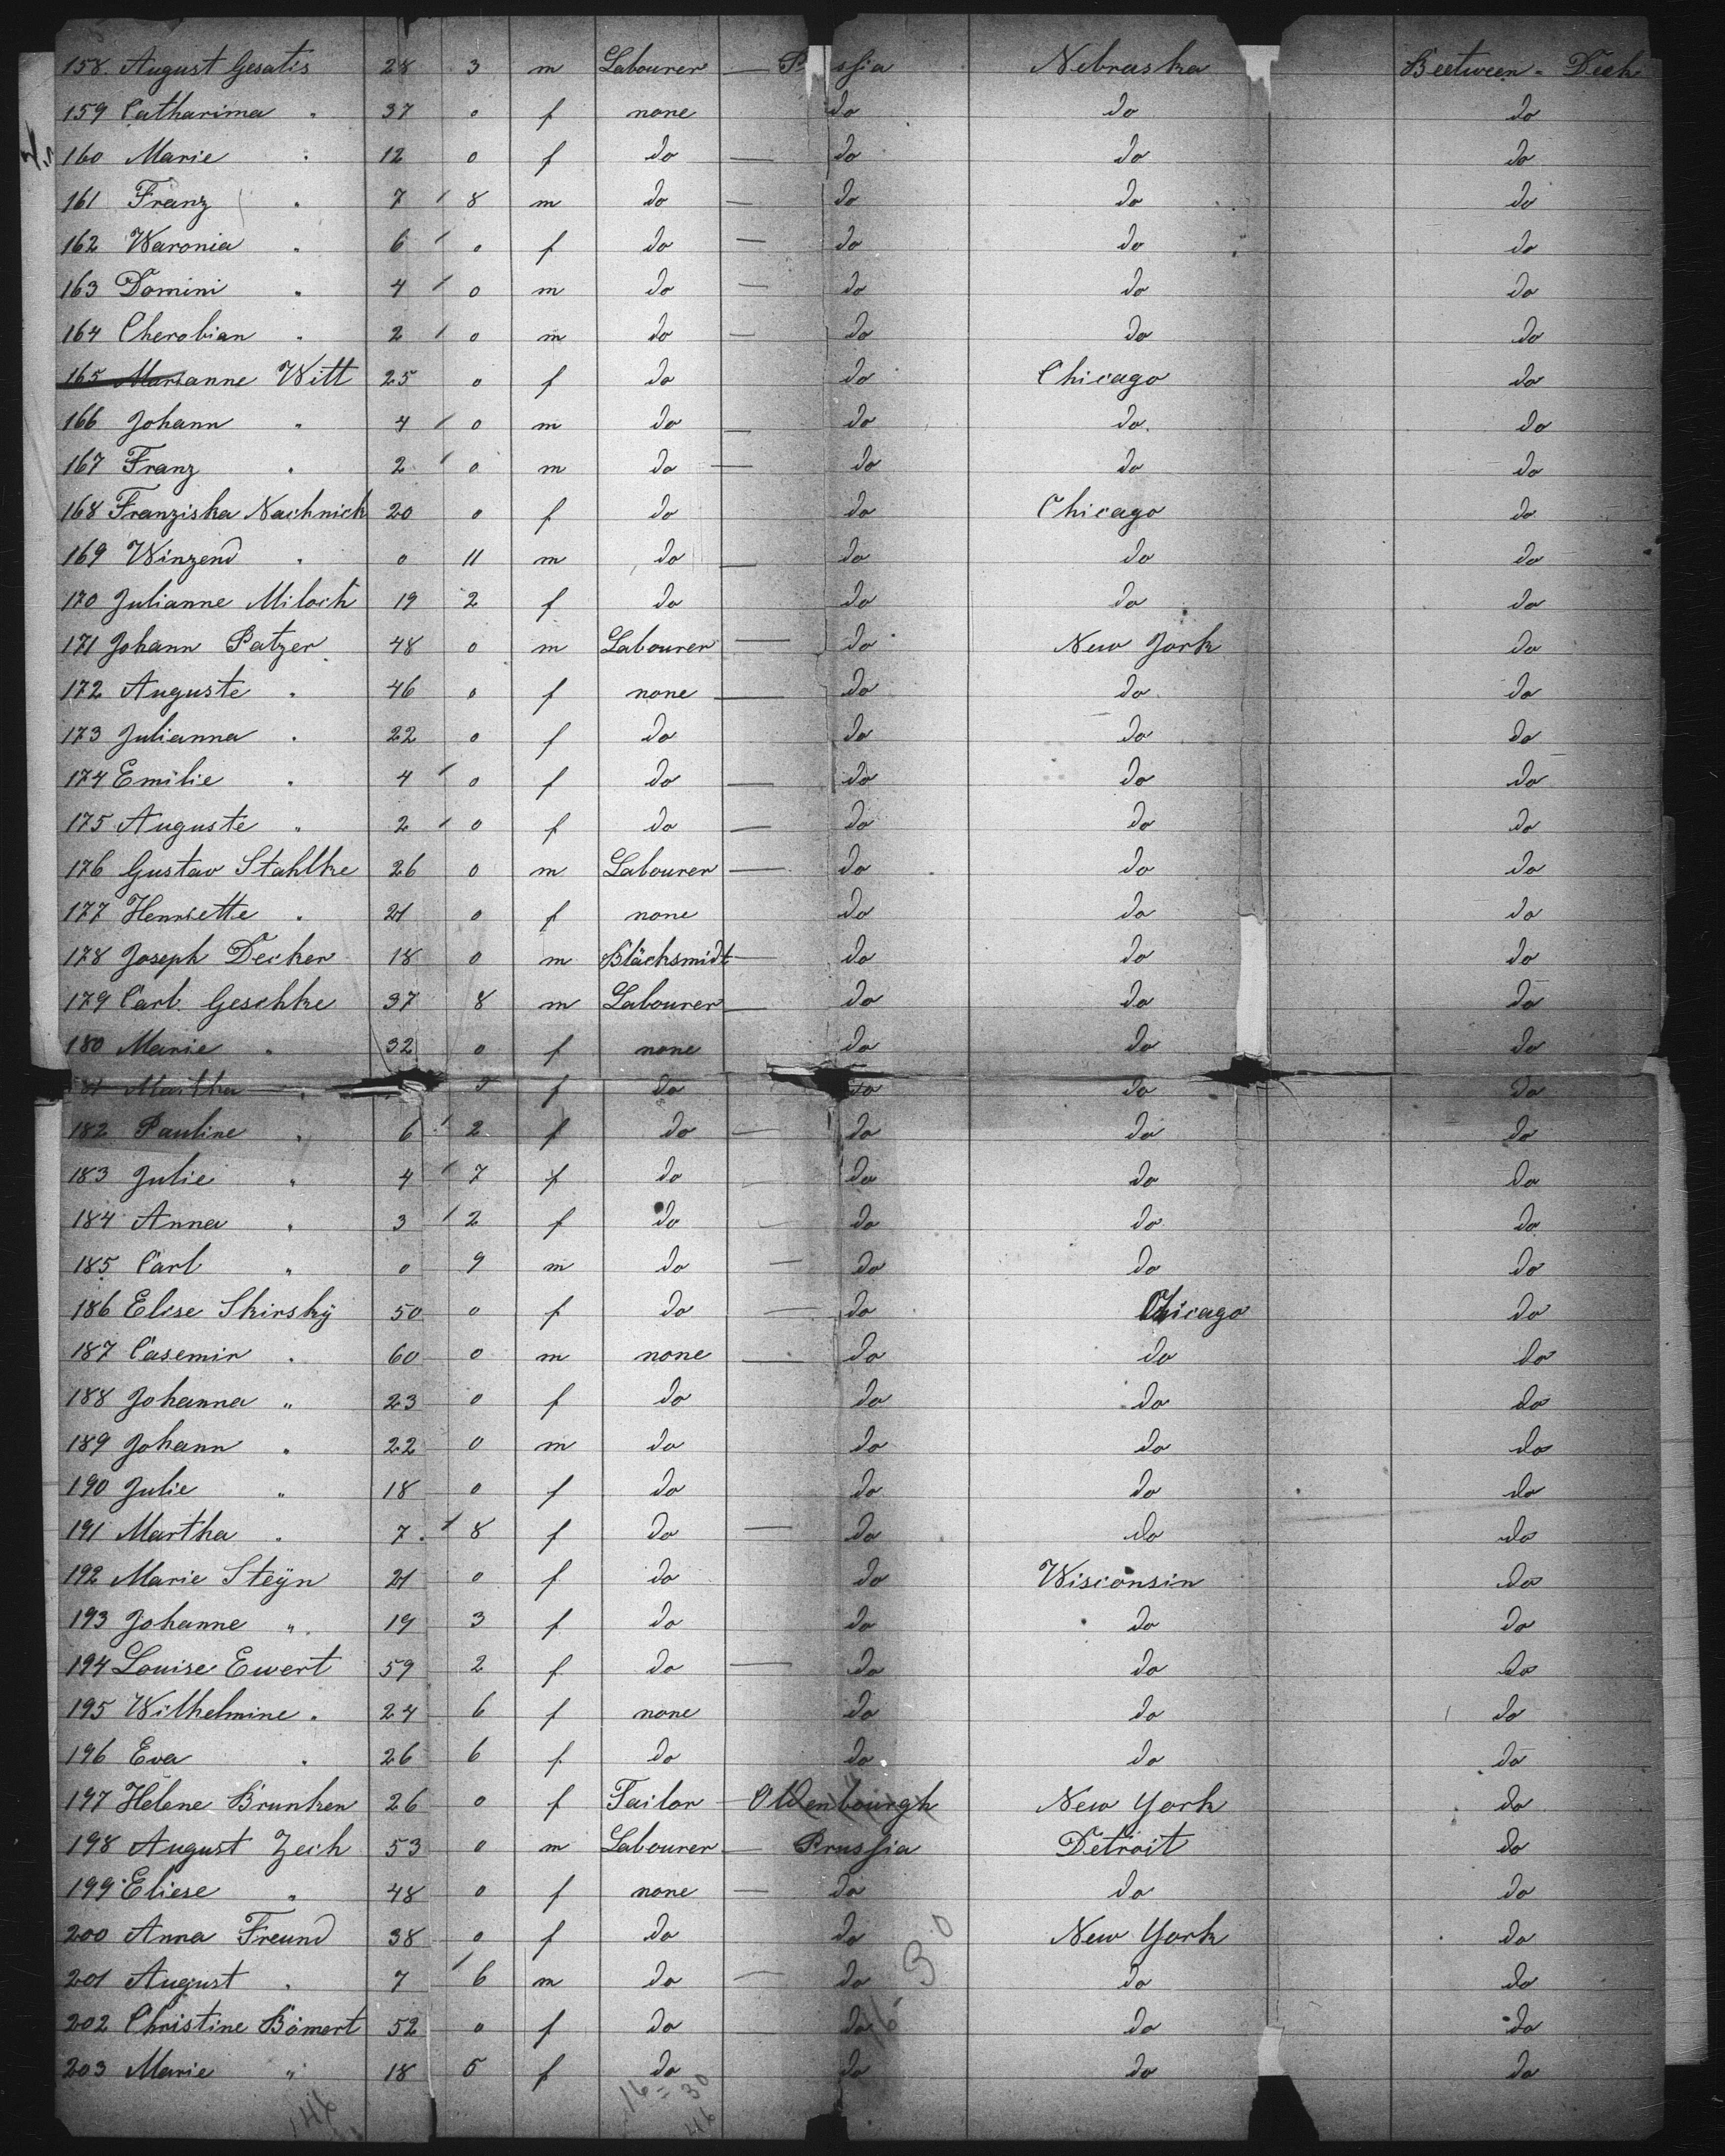 158. August Gesatis 28 3 m Labourer — P ssia Nebraska Beetween - Deck
159 Catharima " 37 0 f none do do do
160 Marie " 12 0 f do — do do do
161 Franz " 7 8 m do — do do do
162 Waronia " 6 0 f do — do do do
163 Domini " 4 0 m do — do do do
164 Cherobian " 2 0 m do — do do do
165 Marianne Witt 25 0 f do do Chicago do
166 Johann " 4 0 m do — do do. do
167 Franz " 2 0 m do — do do do
168 Franziska Nachnick 20 0 f do do Chicago do
169 Winzend " 0 11 m do — do do do
170 Julianne Miloch 19 2 f do do do do
171 Johann Patzer 48 0 m Labourer — do New York do
172 Auguste " 46 0 f none — do do do
173 Julianna " 22 0 f do do do do
174 Emilie " 4 0 f do — do do do
175 Auguste " 2 0 f do — do do do
176 Gustav Stahlke 26 0 m Labourer — do do do
177 Henriette " 21 0 f none do do do
178 Joseph Decker 18 0 m Bläcksmidt — do do do
179 Carl. Geschke 37 8 m Labourer — do do do
180 Marie " 32 0 f none do do do
181 Martha " f do do do do
182 Pauline " 6 2 f do — do do do
183 Julie " 4 7 f do — do do do
184 Anna " 3 2 f do — do do do
185 Carl " 0 9 m do — do do do
186 Elise Skirskÿ 50 0 f do — do Chicago do
187 Casemir " 60 0 m none — do do do
188 Johanna " 23 0 f do do do do
189 Johann " 22 0 m do do do do
190 Julie " 18 0 f do do do do
191 Martha " 7 8 f do — do do do
192 Marie Steÿn 21 0 f do do Wisconsin do
193 Johanne " 19 3 f do do do do
194 Louise Ewert 59 2 f do — do do do
195 Wilhelmine " 24 6 f none do do do
196 Eva " 26 6 f do do do do
197 Helene Brunken 26 0 f Tailor — Oldenbourgh New York do
198 August Zech 53 0 m Labourer — Prussia Detroit do
199 Eliese " 48 0 f none — do do do
200 Anna Freund 38 0 f do do New York do
201 August " 7 6 m do — do do do
202 Christine Bömert 52 0 f do do do do
203 Marie " 18 5 f do do do do
146 16 = 30
46